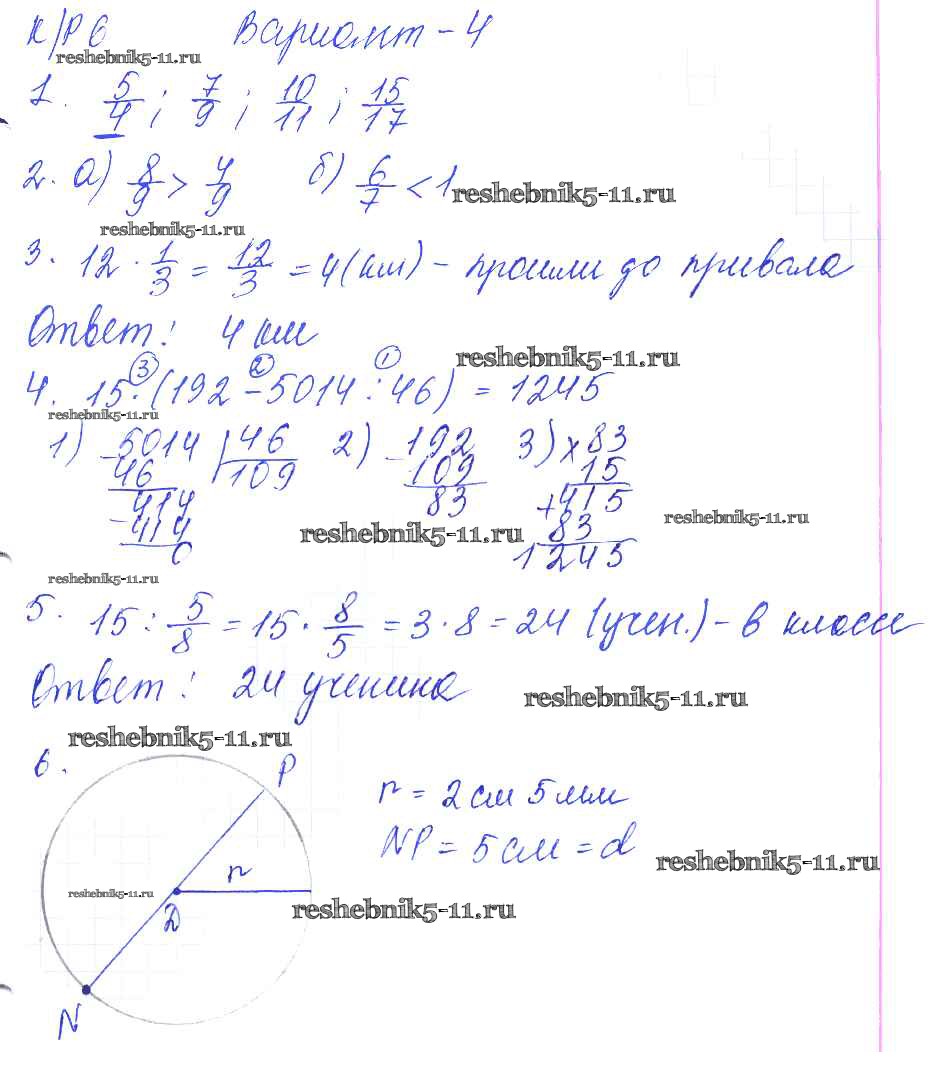 К/Р 6 Вариант - 4
reshebnik5-11.ru
1. 5/4 ; 7/9 ; 10/11 ; 15/17
2. а) 8/9 > 4/9 б) 6/7 < 1
reshebnik5-11.ru
reshebnik5-11.ru
3. 12 · 1/3 = 12/3 = 4 (км) - прошли до привала
Ответ: 4 км
reshebnik5-11.ru
3 2 1
4. 15 · (192 - 5014 : 46) = 1245
reshebnik5-11.ru
1) 5014 46 2) 192 3) × 83
- 46 109 - 109 15
414 83 + 415
- 414 83
0 1245
reshebnik5-11.ru
reshebnik5-11.ru
reshebnik5-11.ru
5. 15 : 5/8 = 15 · 8/5 = 3 · 8 = 24 (учен.) - в классе
Ответ: 24 ученика
reshebnik5-11.ru
reshebnik5-11.ru
6. P
r = 2 см 5 мм
NP = 5 см = d
reshebnik5-11.ru
r
reshebnik5-11.ru
reshebnik5-11.ru
D
N